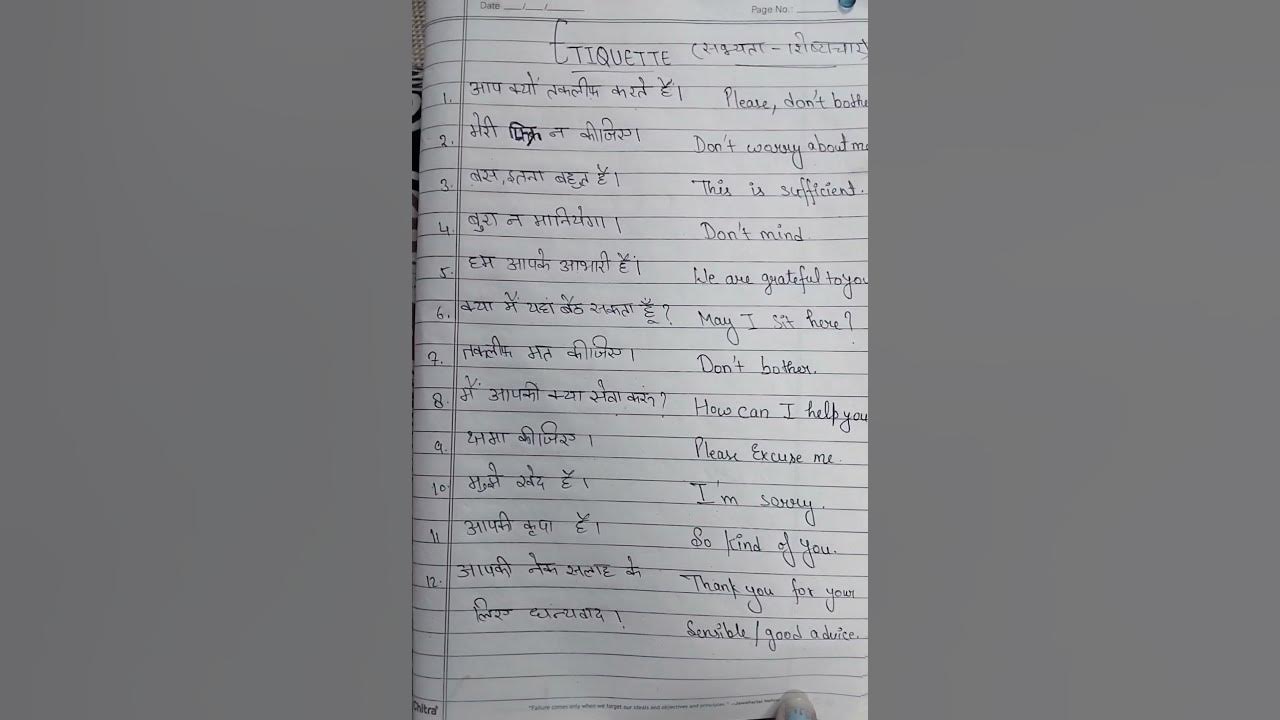 Date __/__/____ Page No.: ____
ETIQUETTE (सभ्यता - शिष्टाचार)
1. आप क्यों तकलीफ करते हैं। Please, don't bothe
2. मेरी फिक्र न कीजिए। Don't worry about me
3. बस, इतना बहुत है। This is sufficient.
4. बुरा न मानियेगा। Don't mind
5. हम आपके आभारी हैं। We are grateful to you
6. क्या मैं यहां बैठ सकता हूँ? May I sit here?
7. तकलीफ मत कीजिए। Don't bother.
8. मैं आपकी क्या सेवा करूं? How can I help you
9. क्षमा कीजिए। Please Excuse me.
10. मुझे खेद है। I'm sorry.
11. आपकी कृपा है। So kind of you.
12. आपकी नेक सलाह के Thank you for your
लिए धन्यवाद। Sensible/good advice.
Chitra "Failure comes only when we forget our ideals and objectives and principles."